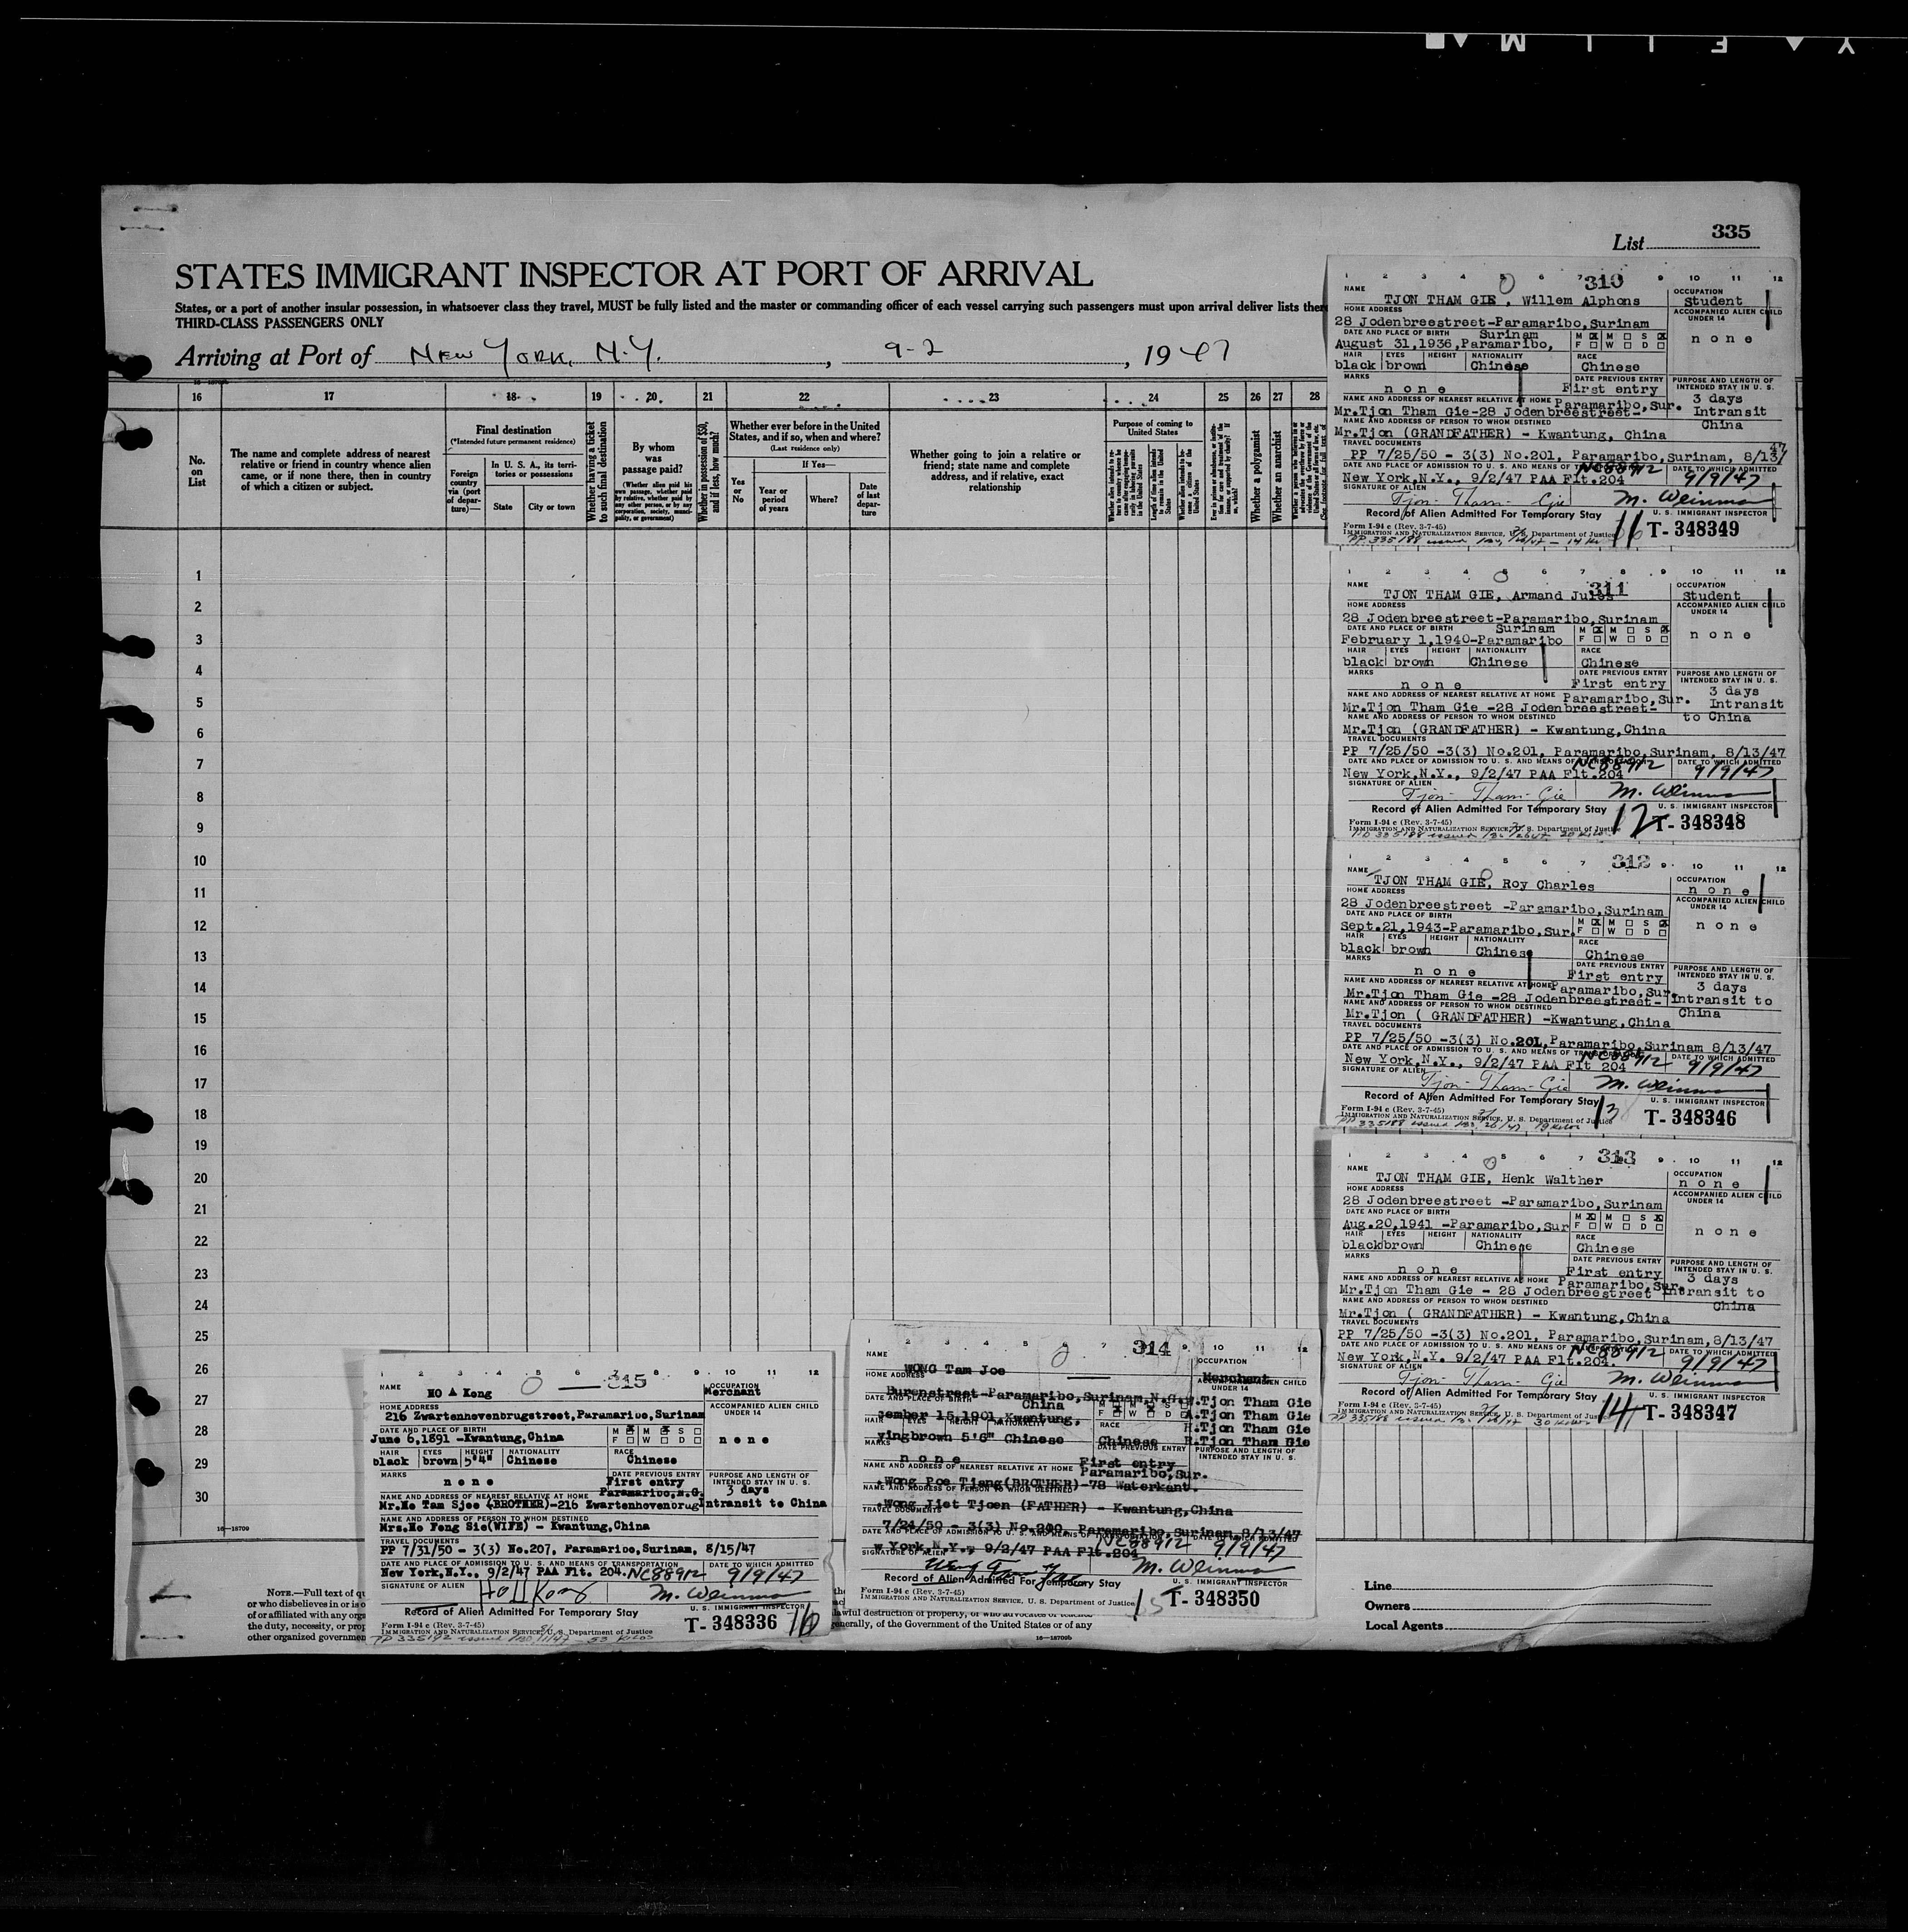 List 335
STATES IMMIGRANT INSPECTOR AT PORT OF ARRIVAL
States, or a port of another insular possession, in whatsoever class they travel, MUST be fully listed and the master or commanding officer of each vessel carrying such passengers must upon arrival deliver lists there
THIRD-CLASS PASSENGERS ONLY
Arriving at Port of New York, N.Y., 9-2, 1947
16 17 18 19 20 21 22 23 24 25 26 27 28
No. on List
The name and complete address of nearest relative or friend in country whence alien came, or if none there, then in country of which a citizen or subject.
Final destination
(*Intended future permanent residence)
Foreign country via (port of departure)—
In U. S. A., its territories or possessions
State
City or town
Whether having a ticket to such final destination
By whom was passage paid?
(Whether alien paid his own passage, whether paid by relative, whether paid by any other person, or by any corporation, society, municipality, or government)
Whether in possession of $50, and if less, how much?
Whether ever before in the United States, and if so, when and where?
(Last residence only)
Yes or No
If Yes—
Year or period of years
Where?
Date of last departure
Whether going to join a relative or friend; state name and complete address, and if relative, exact relationship
Purpose of coming to United States
Whether a polygamist
Whether an anarchist
1
2
3
4
5
6
7
8
9
10
11
12
13
14
15
16
17
18
19
20
21
22
23
24
25
26
27
28
29
30
16—18709
1 2 3 4 5 6 7 310 9 10 11 12
NAME
TJON THAM GIE, Willem Alphons
OCCUPATION
Student
HOME ADDRESS
28 Jodenbreestreet-Paramaribo,Surinam
ACCOMPANIED ALIEN CHILD UNDER 14
none
DATE AND PLACE OF BIRTH
Surinam
August 31,1936,Paramaribo,
M M S
F W D
HAIR EYES HEIGHT NATIONALITY RACE
black brown Chinese Chinese
MARKS
none
DATE PREVIOUS ENTRY
First entry
PURPOSE AND LENGTH OF INTENDED STAY IN U. S.
3 days
Intransit
China
NAME AND ADDRESS OF NEAREST RELATIVE AT HOME Paramaribo,Sur.
Mr.Tjon Tham Gie-28 Jodenbreestreet-
NAME AND ADDRESS OF PERSON TO WHOM DESTINED
Mr.Tjon (GRANDFATHER) - Kwantung, China
TRAVEL DOCUMENTS
PP 7/25/50 - 3(3) No.201, Paramaribo,Surinam, 8/13/47
DATE AND PLACE OF ADMISSION TO U. S. AND MEANS OF TRANSPORTATION NC88912 DATE TO WHICH ADMITTED
New York,N.Y., 9/2/47 PAA Flt.204 9/9/47
SIGNATURE OF ALIEN
Tjon-Tham-Gie M. Weinman
Record of Alien Admitted For Temporary Stay
U. S. IMMIGRANT INSPECTOR
Form I-94 c (Rev. 3-7-45)
IMMIGRATION AND NATURALIZATION SERVICE, U. S. Department of Justice
11 T-348349
1 2 3 4 5 6 7 8 9 10 11 12
311
NAME
TJON THAM GIE, Armand Jules
OCCUPATION
Student
HOME ADDRESS
28 Jodenbreestreet-Paramaribo,Surinam
ACCOMPANIED ALIEN CHILD UNDER 14
none
DATE AND PLACE OF BIRTH
Surinam
February 1,1940-Paramaribo
M M S
F W D
HAIR EYES HEIGHT NATIONALITY RACE
black brown Chinese Chinese
MARKS
none
DATE PREVIOUS ENTRY
First entry
PURPOSE AND LENGTH OF INTENDED STAY IN U. S.
3 days
Intransit
to China
NAME AND ADDRESS OF NEAREST RELATIVE AT HOME Paramaribo,Sur.
Mr.Tjon Tham Gie -28 Jodenbreestreet-
NAME AND ADDRESS OF PERSON TO WHOM DESTINED
Mr.Tjon (GRANDFATHER) - Kwantung,China
TRAVEL DOCUMENTS
PP 7/25/50 -3(3) No.201, Paramaribo,Surinam, 8/13/47
DATE AND PLACE OF ADMISSION TO U. S. AND MEANS OF TRANSPORTATION NC88912 DATE TO WHICH ADMITTED
New York,N.Y., 9/2/47 PAA Flt.204 9/9/47
SIGNATURE OF ALIEN
Tjon-Tham-Gie M. Weinman
Record of Alien Admitted For Temporary Stay
U. S. IMMIGRANT INSPECTOR
Form I-94 c (Rev. 3-7-45)
IMMIGRATION AND NATURALIZATION SERVICE, U. S. Department of Justice
12 T-348348
1 2 3 4 5 6 7 312 9 10 11 12
NAME
TJON THAM GIE, Roy Charles
OCCUPATION
none
HOME ADDRESS
28 Jodenbreestreet -Paramaribo,Surinam
ACCOMPANIED ALIEN CHILD UNDER 14
none
DATE AND PLACE OF BIRTH
Sept.21,1943-Paramaribo,Sur.
M M S
F W D
HAIR EYES HEIGHT NATIONALITY RACE
black brown Chinese Chinese
MARKS
none
DATE PREVIOUS ENTRY
First entry
PURPOSE AND LENGTH OF INTENDED STAY IN U. S.
3 days
Intransit to
China
NAME AND ADDRESS OF NEAREST RELATIVE AT HOME Paramaribo,Sur.
Mr.Tjon Tham Gie -28 Jodenbreestreet-
NAME AND ADDRESS OF PERSON TO WHOM DESTINED
Mr.Tjon ( GRANDFATHER) -Kwantung,China
TRAVEL DOCUMENTS
PP 7/25/50 -3(3) No.201,Paramaribo,Surinam 8/13/47
DATE AND PLACE OF ADMISSION TO U. S. AND MEANS OF TRANSPORTATION NC88912 DATE TO WHICH ADMITTED
New York,N.Y., 9/2/47 PAA Flt 204 9/9/47
SIGNATURE OF ALIEN
Tjon-Tham-Gie M. Weinman
Record of Alien Admitted For Temporary Stay
U. S. IMMIGRANT INSPECTOR
Form I-94 c (Rev. 3-7-45)
IMMIGRATION AND NATURALIZATION SERVICE, U. S. Department of Justice
13 T-348346
1 2 3 4 5 6 7 313 9 10 11 12
NAME
TJON THAM GIE, Henk Walther
OCCUPATION
none
HOME ADDRESS
28 Jodenbreestreet -Paramaribo,Surinam
ACCOMPANIED ALIEN CHILD UNDER 14
none
DATE AND PLACE OF BIRTH
Aug.20,1941 -Paramaribo,Sur
M M S
F W D
HAIR EYES HEIGHT NATIONALITY RACE
black brown Chinese Chinese
MARKS
none
DATE PREVIOUS ENTRY
First entry
PURPOSE AND LENGTH OF INTENDED STAY IN U. S.
3 days
Intransit to
China
NAME AND ADDRESS OF NEAREST RELATIVE AT HOME Paramaribo,Sur.
Mr.Tjon Tham Gie - 28 Jodenbreestreet
NAME AND ADDRESS OF PERSON TO WHOM DESTINED
Mr.Tjon ( GRANDFATHER) - Kwantung,China
TRAVEL DOCUMENTS
PP 7/25/50 -3(3) No.201, Paramaribo,Surinam,8/13/47
DATE AND PLACE OF ADMISSION TO U. S. AND MEANS OF TRANSPORTATION NC88912 DATE TO WHICH ADMITTED
New York,N.Y. 9/2/47 PAA Flt.204. 9/9/47
SIGNATURE OF ALIEN
Tjon-Tham-Gie M. Weinman
Record of Alien Admitted For Temporary Stay
U. S. IMMIGRANT INSPECTOR
Form I-94 c (Rev. 3-7-45)
IMMIGRATION AND NATURALIZATION SERVICE, U. S. Department of Justice
14 T-348347
1 2 3 4 5 6 7 314 9 10 11 12
NAME
WONG Tam Joe
OCCUPATION
Merchant
HOME ADDRESS
Burenstreet-Paramaribo,Surinam,N.G.
ACCOMPANIED ALIEN CHILD UNDER 14
W.Tjon Tham Gie
A.Tjon Tham Gie
R.Tjon Tham Gie
H.Tjon Tham Gie
DATE AND PLACE OF BIRTH
China
cember 15,1901,Kwantung,
M M S
F W D
HAIR EYES HEIGHT NATIONALITY RACE
brown 5'6" Chinese Chinese
MARKS
none
DATE PREVIOUS ENTRY
First entry
PURPOSE AND LENGTH OF INTENDED STAY IN U. S.
NAME AND ADDRESS OF NEAREST RELATIVE AT HOME Paramaribo,Sur.
.Wong Poe Tjang(BROTHER)-78 Waterkant.
NAME AND ADDRESS OF PERSON TO WHOM DESTINED
.Wong Jiet Tjoen (FATHER) - Kwantung,China
TRAVEL DOCUMENTS
7/24/50 - 3(3) No.200, Paramaribo,Surinam,8/13/47
DATE AND PLACE OF ADMISSION TO U. S. AND MEANS OF TRANSPORTATION NC88912 DATE TO WHICH ADMITTED
w York,N.Y., 9/2/47 PAA Flt.204 9/9/47
SIGNATURE OF ALIEN
M. Weinman
Record of Alien Admitted For Temporary Stay
U. S. IMMIGRANT INSPECTOR
Form I-94 c (Rev. 3-7-45)
IMMIGRATION AND NATURALIZATION SERVICE, U. S. Department of Justice
15 T-348350
1 2 3 4 5 6 7 8 9 10 11 12
315
NAME
HO A Kong
OCCUPATION
Merchant
HOME ADDRESS
216 Zwartenhovenbrugstreet,Paramaribo,Surinam
ACCOMPANIED ALIEN CHILD UNDER 14
none
DATE AND PLACE OF BIRTH
June 6,1891 -Kwantung,China
M M S
F W D
HAIR EYES HEIGHT NATIONALITY RACE
black brown 5'4" Chinese Chinese
MARKS
none
DATE PREVIOUS ENTRY
First entry
PURPOSE AND LENGTH OF INTENDED STAY IN U. S.
3 days
Intransit to China
NAME AND ADDRESS OF NEAREST RELATIVE AT HOME Paramaribo,N.G.
Mr.Ho Tam Sjee (BROTHER)-216 Zwartenhovenbrug
NAME AND ADDRESS OF PERSON TO WHOM DESTINED
Mrs.Ho Fong Sie(WIFE) - Kwantung,China
TRAVEL DOCUMENTS
PP 7/31/50 - 3(3) No.207, Paramaribo,Surinam, 8/15/47
DATE AND PLACE OF ADMISSION TO U. S. AND MEANS OF TRANSPORTATION DATE TO WHICH ADMITTED
New York,N.Y., 9/2/47 PAA Flt. 204. NC88912 9/9/47
SIGNATURE OF ALIEN
M. Weinman
Record of Alien Admitted For Temporary Stay
U. S. IMMIGRANT INSPECTOR
Form I-94 c (Rev. 3-7-45)
IMMIGRATION AND NATURALIZATION SERVICE, U. S. Department of Justice
T-348336 16
NOTE.—Full text of
or who disbelieves in or is
of or affiliated with any
the duty, necessity, or
other organized
lawful destruction of property, or who advocates or teaches
generally, of the Government of the United States or of any
16—18709b
Line
Owners
Local Agents